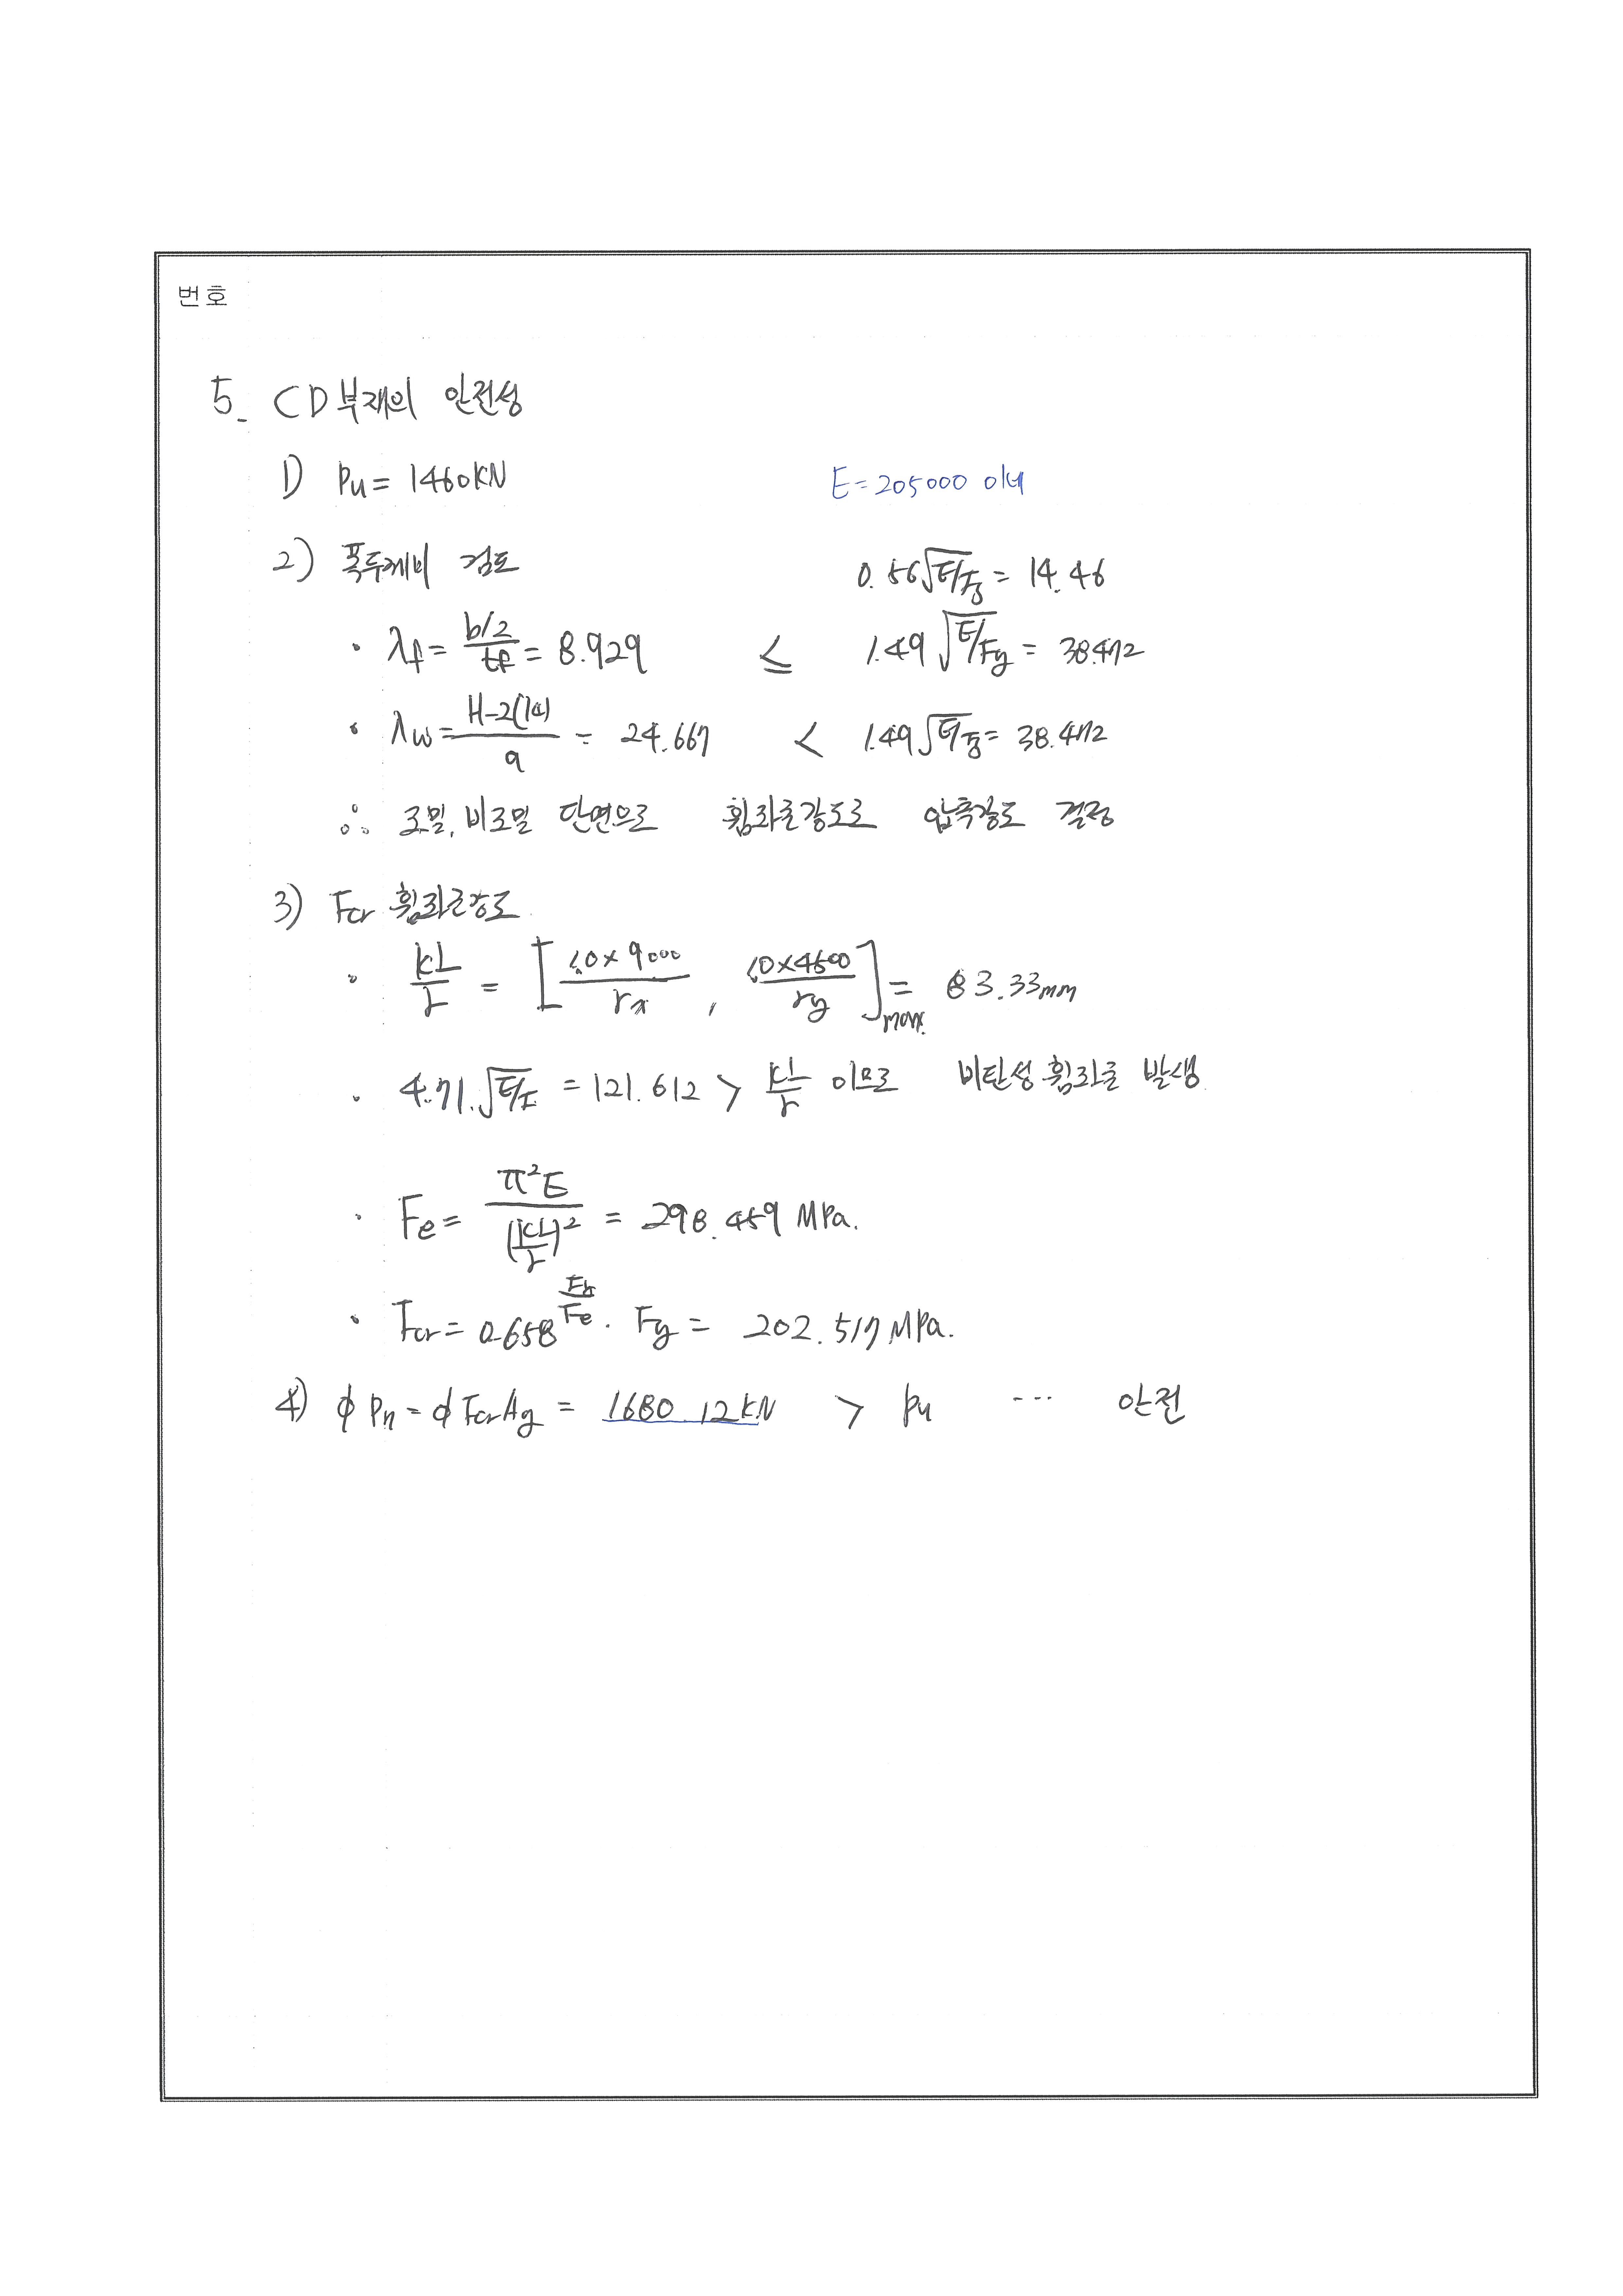 번호
5. CD부재의 안전성
1) Pu = 1460kN E=205000 이너
2) 폭두께비 검토 0.56√E/Fy = 14.46
· λf = (b/2)/tf = 8.929 ≤ 1.49√E/Fy = 38.472
· λw = (H-2(14))/9 = 24.667 < 1.49√E/Fy = 38.472
∴ 조밀, 비조밀 단면으로 휨좌굴강도로 압축강도 결정
3) Fcr 휨좌굴강도
· kL/r = [1.0×9000/rx, 1.0×4500/ry]max = 83.33mm
· 4.71·√E/F = 121.612 > kL/r 이므로 비탄성 휨좌굴 발생
· Fe = π²E/(kL/r)² = 298.459 MPa.
· Fcr = 0.658^(Fy/Fe) · Fy = 202.517 MPa.
4) ϕPn = ϕFcrAg = 1680.12kN > Pu ··· 안전